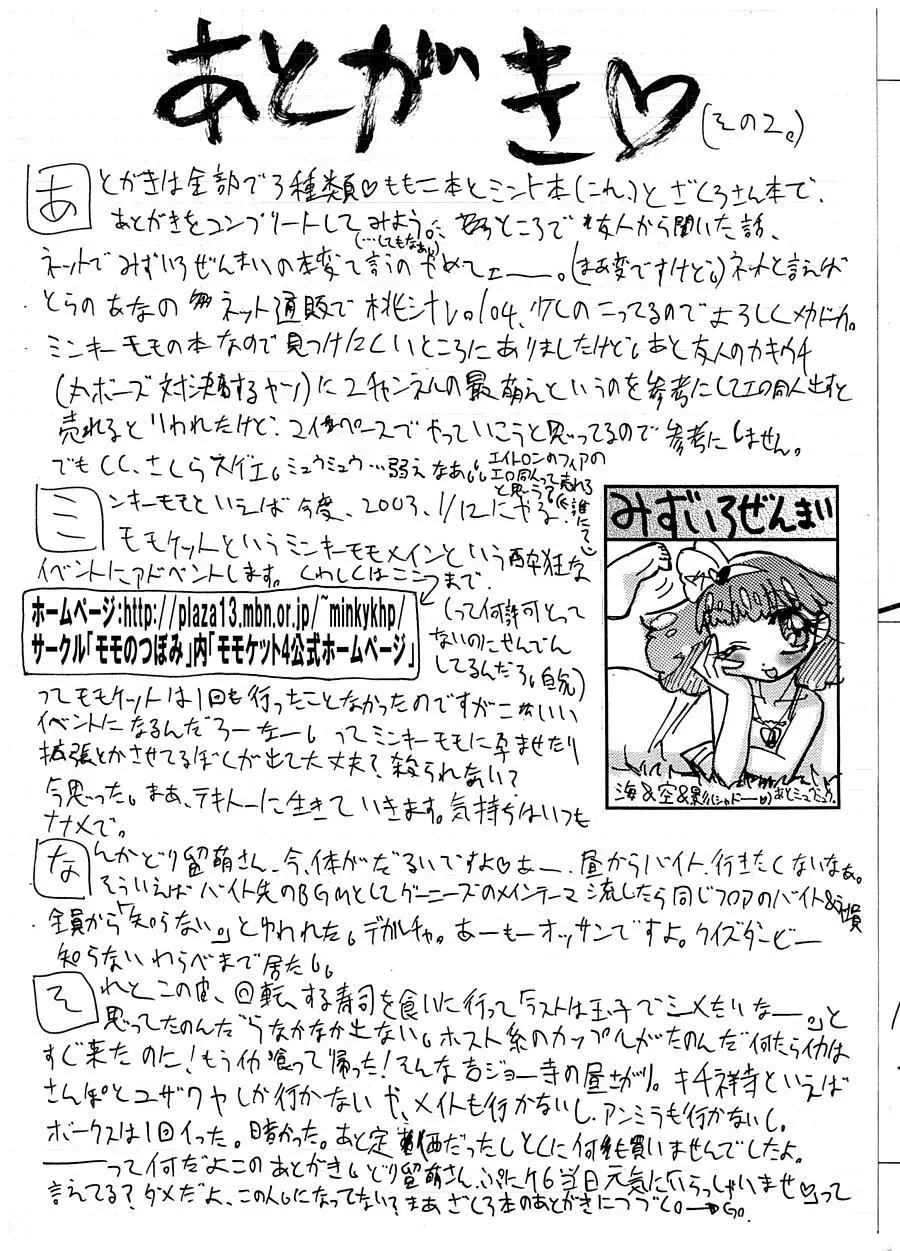 あとがき♡
(その2。)
あとがきは全部で3種類♡ももこ本とミント本(これ)とざくろさん本で、
あとがきをコンプリートしてみよう。ところで友人から聞いた話、
(…してもなあ)
ネットでみずいろぜんまいの本変て言うのやめてェーー。(まあ変ですけど。)ネットと言えば
とらのあなのネット通販で桃汁Vol04、少しのこってるのでよろしくメカドカ。
ミンキーモモの本なので見つけにくいところにありましたけど。あと友人のカキウチ
(丸ボーズ対決するヤツ)に2チャンネルの最萌えというのを参考にしてエロ同人出すと
売れるといわれたけど、マイペースでやっていこうと思ってるので参考にしません。
でもCCさくらスゲエ。ミュウミュウ…弱えなあ。
エイトロンのフィアの
エロ同人って売れる
と思う?(誰にて)
ミンキーモモといえば今度、2003、1/12にやる
モモケットというミンキーモモメインという酔狂な
イベントにアドベントします。くわしくはここまで。
ホームページ:http://plaza13.mbn.or.jp/~minkykhp/
サークル「モモのつぼみ」内「モモケット4公式ホームページ」
(って何許可とって
ないのにせんでん
してるんだろ。自分)
みずいろぜんまい
海&空&影(シャドー♡)あとミュウミュウ。
ってモモケットは1回も行ったことなかったのですがいい
イベントになるんだろーなー。ってミンキーモモに孕ませたり
拡張とかさせてるぼくが出て大丈夫?殺られない?
今思った。まあ、テキトーに生きていきます。気持ちはいつも
ナナメで。
なんかどり留萌さん、今、体がだるいですよ♡あー、昼からバイト、行きたくないなぁ。
そういえばバイト先のBGMとしてグーニーズのメインテーマ流したら同じフロアのバイト&社員
全員から「知らない。」とゆわれた。デカルチャ。あーもーオッサンですよ。クイズダービー
知らないわらべまで居たし。
それとこの間、回転する寿司を食いに行って「ラストは玉子でシメだいなー。」と
思ってたのんだらなかなか出ない。ホスト系のカップルがたのんだ何たらイカは
すぐ来たのに!もうイカ喰って帰った!そんな吉ジョー寺の昼さがり。キチ祥寺といえば
さんぽとユザワヤしか行かないや、メイトも行かないし、アンミラも行かないし。
ボークスは1回イった。暗かった。あと定価だったしとくに何も買いませんでしたよ。
――って何だよこのあとがき。どり留萌さん、ぷにケ6当日元気にいらっしゃいませ♡って
言えてる?ダメだよ、この人。になってない?まあざくろ本のあとがきにつづく。→Go.